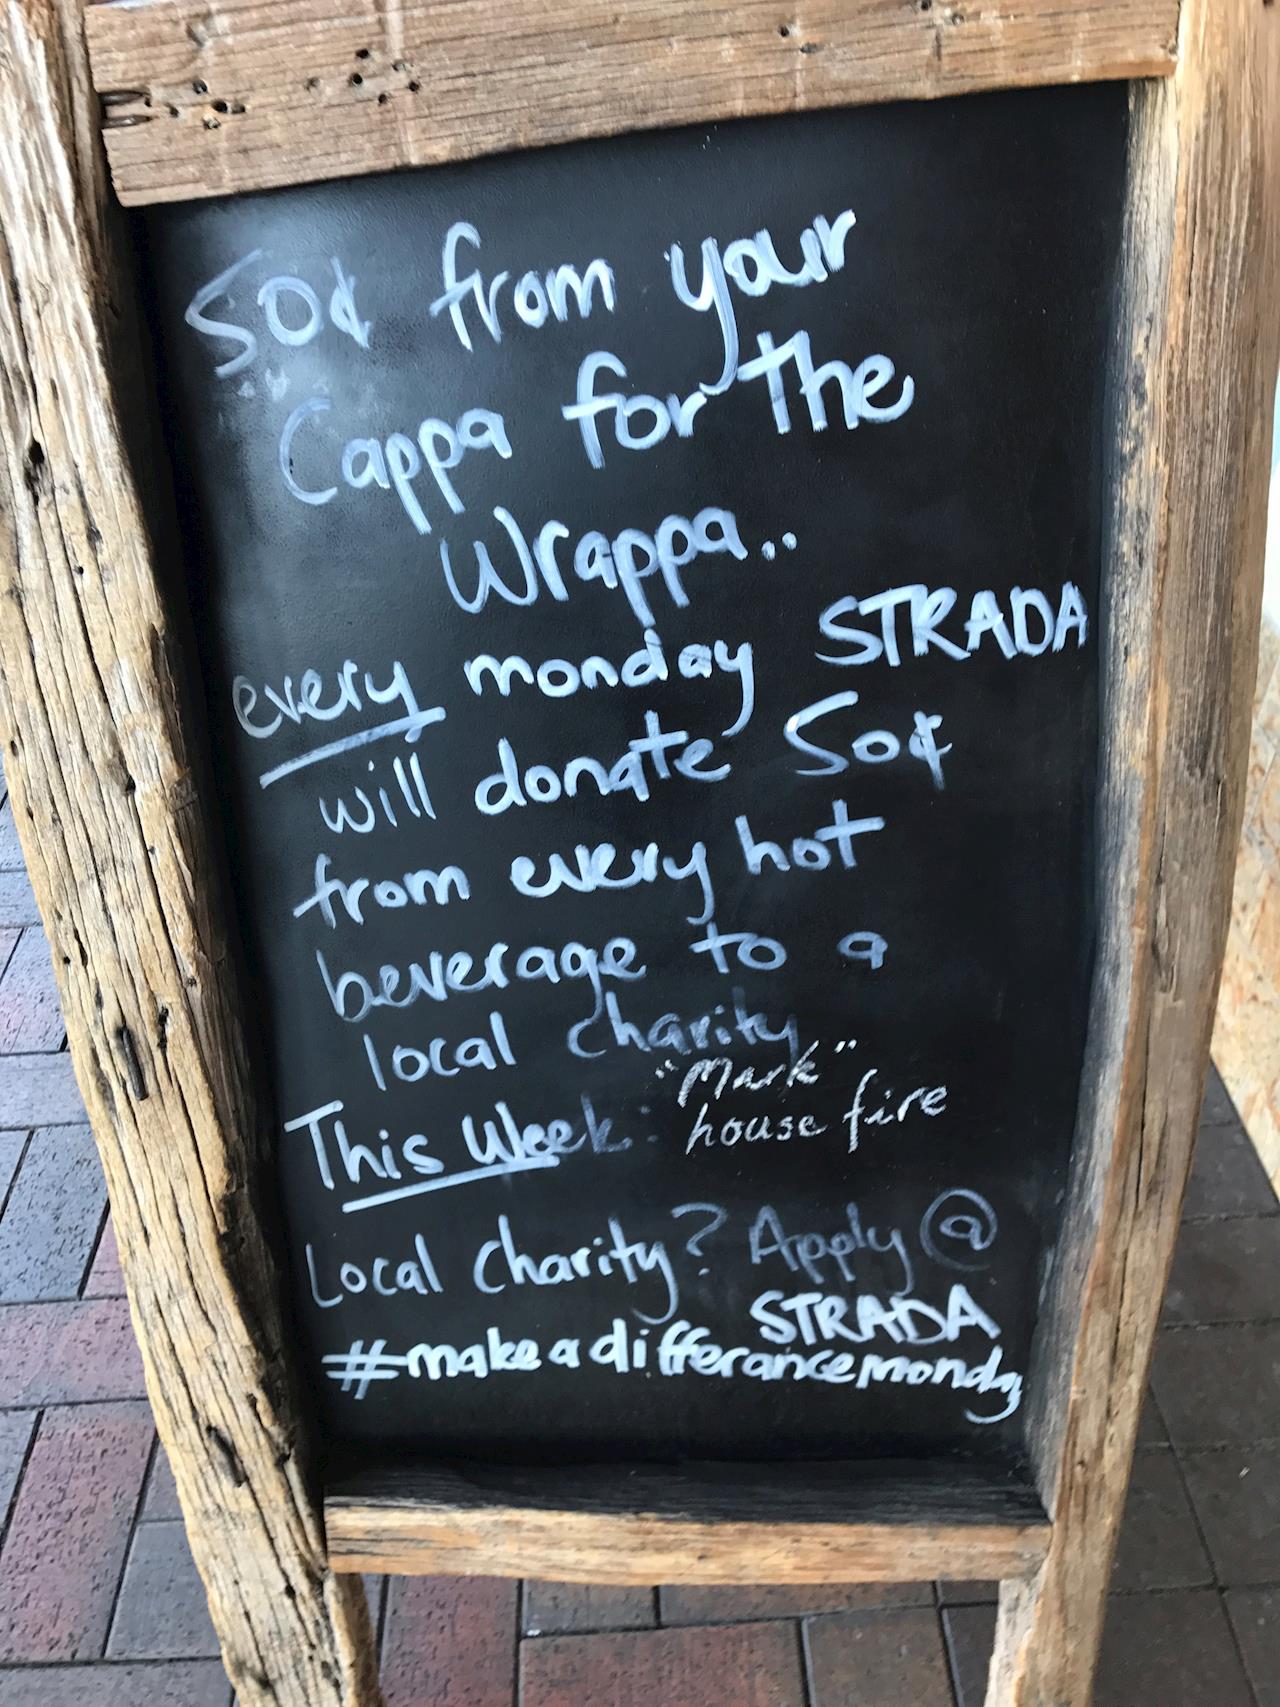 50¢ from your
Cappa for the
Wrappa..
every monday STRADA
will donate 50¢
from every hot
beverage to a
local charity
This Week: "Mark"
house fire
Local Charity? Apply @
STRADA
#makeadifferancemonday